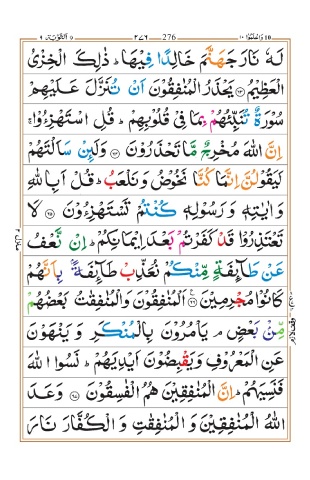 واعلموا ١٠ 276 ٢٧٦ التوبة ٩
لَهٗ نَارَ جَهَنَّمَ خَالِدًا فِيْهَا ؕ ذٰلِكَ الْخِزْىُ
الْعَظِيْمُ ﴿۶۳﴾ يَحْذَرُ الْمُنٰفِقُوْنَ اَنْ تُنَزَّلَ عَلَيْهِمْ
سُوْرَةٌ تُنَبِّئُهُمْ بِمَا فِىْ قُلُوْبِهِمْ ؕ قُلِ اسْتَهْزِءُوْا ۚ
اِنَّ اللّٰهَ مُخْرِجٌ مَّا تَحْذَرُوْنَ ﴿۶۴﴾ وَلَئِنْ سَاَلْتَهُمْ
لَيَقُوْلُنَّ اِنَّمَا كُنَّا نَخُوْضُ وَنَلْعَبُ ؕ قُلْ اَبِاللّٰهِ
وَ اٰيٰتِهٖ وَ رَسُوْلِهٖ كُنْتُمْ تَسْتَهْزِءُوْنَ ﴿۶۵﴾ لَا
تَعْتَذِرُوْا قَدْ كَفَرْتُمْ بَعْدَ اِيْمَانِكُمْ ؕ اِنْ نَّعْفُ
عَنْ طَآئِفَةٍ مِّنْكُمْ نُعَذِّبْ طَآئِفَةًۢ بِاَنَّهُمْ
كَانُوْا مُجْرِمِيْنَ ﴿۶۶﴾ اَلْمُنٰفِقُوْنَ وَالْمُنٰفِقٰتُ بَعْضُهُمْ
مِّنْۢ بَعْضٍ ۘ يَاْمُرُوْنَ بِالْمُنْكَرِ وَ يَنْهَوْنَ
عَنِ الْمَعْرُوْفِ وَيَقْبِضُوْنَ اَيْدِيَهُمْ ؕ نَسُوا اللّٰهَ
فَنَسِيَهُمْ ؕ اِنَّ الْمُنٰفِقِيْنَ هُمُ الْفٰسِقُوْنَ ﴿۶۷﴾ وَعَدَ
اللّٰهُ الْمُنٰفِقِيْنَ وَ الْمُنٰفِقٰتِ وَ الْكُفَّارَ نَارَ